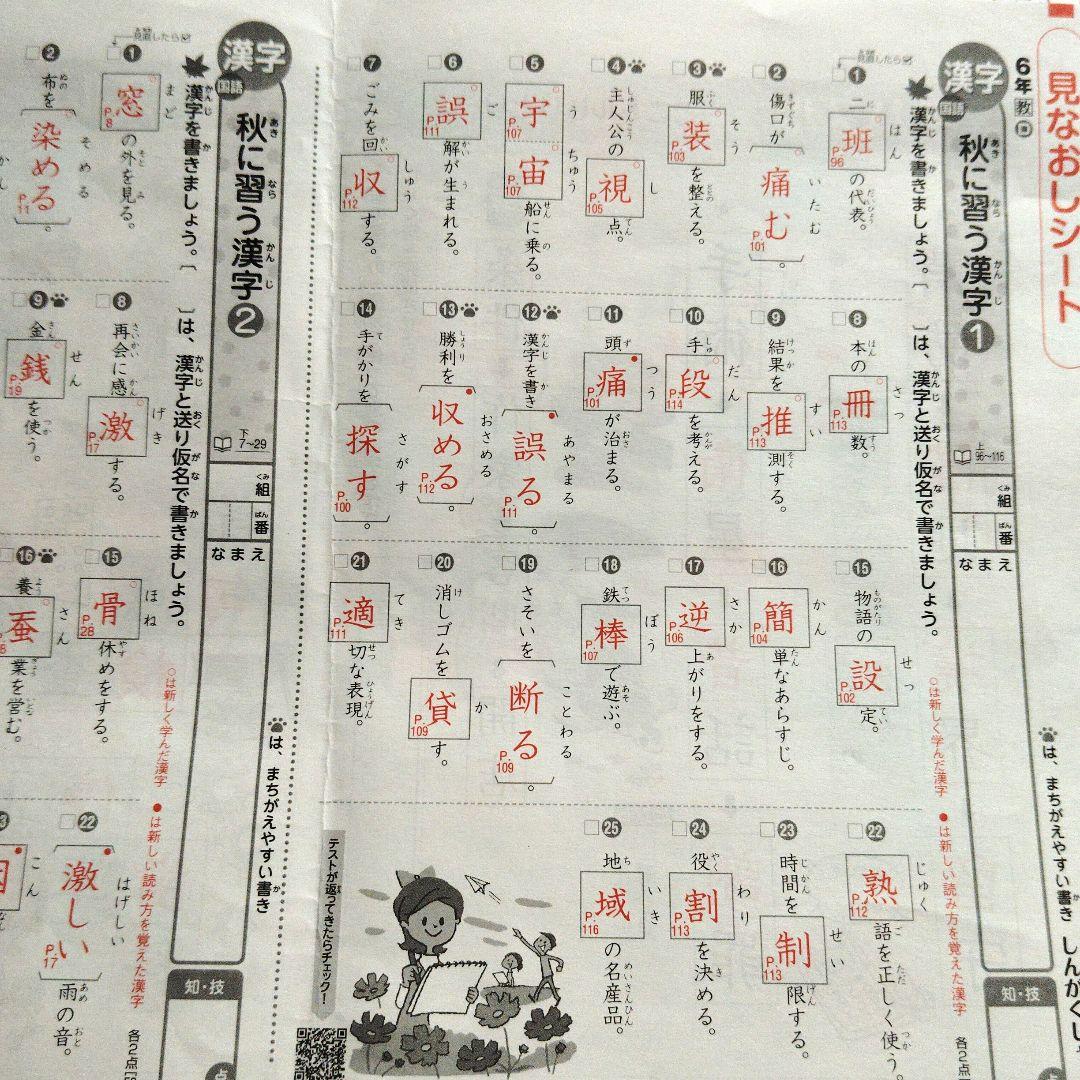 見なおしシート
6年 教
漢字 国語
秋に習う漢字 1
上 96〜116
組
番
なまえ
知・技
見直したら
漢字を書きましょう。〔 〕は、漢字と送り仮名で書きましょう。
○は新しく学んだ漢字 ●は新しい読み方を覚えた漢字
は、まちがえやすい書き
しんがくし
各2点
1 二班の代表。 P.96
2 傷口が〔痛む〕。 P.101
3 服装を整える。 P.103
4 主人公の視点。 P.105
5 宇宙船に乗る。 P.107 P.107
6 誤解が生まれる。 P.111
7 ごみを回収する。 P.112
8 本の冊数。 P.113
9 結果を推測する。 P.113
10 手段を考える。 P.114
11 頭痛が治まる。 P.101
12 漢字を書き〔誤る〕。 P.111
13 勝利を〔収める〕。 P.112
14 手がかりを〔探す〕。 P.100
15 物語の設定。 P.102
16 簡単なあらすじ。 P.104
17 逆上がりをする。 P.106
18 鉄棒で遊ぶ。 P.107
19 さそいを〔断る〕。 P.109
20 消しゴムを貸す。 P.109
21 適切な表現。 P.111
22 熟語を正しく使う。 P.112
23 時間を制限する。 P.113
24 役割を決める。 P.113
25 地域の名産品。 P.116
テストが返ってきたらチェック!
漢字 国語
秋に習う漢字 2
下 7〜29
組
番
なまえ
知・技
点
見直したら
漢字を書きましょう。〔 〕は、漢字と送り仮名で書きましょう。
○は新しく学んだ漢字 ●は新しい読み方を覚えた漢字
は、まちがえやすい書き
各2点
1 窓の外を見る。 P.8
2 布を〔染める P.11
8 再会に感激する。 P.17
9 金銭を使う。 P.19
15 骨休めをする。 P.28
16 養蚕業を営む。
22 〔激しい〕雨の音。 P.17